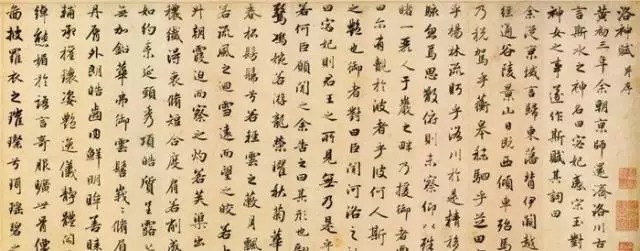 洛神賦 并序
黃初三年余朝京師還濟洛川古
言斯水之神名曰宓妃感宋玉對
神女之事遂作斯賦其詞曰
余從京域言歸東藩背伊闕越
經通谷陵景山日既西傾車殆馬
乃稅駕乎蘅皋秣駟乎芝田
乎楊林流眄乎洛川於是精移
駭忽焉思散俯則未察仰以殊
睹一麗人于巖之畔乃援御者
曰爾有覿於彼者乎彼何人斯
之艷也御者對曰臣聞河洛之
曰宓妃則君王之所見無乃是乎
若何臣願聞之余告之曰其形也
驚鴻婉若游龍榮曜秋菊華
春松髣髴兮若輕雲之蔽月飄
若流風之迴雪遠而望之皎若
升朝霞迫而察之灼若芙蕖出
穠纖得衷脩短合度肩若削
如約素延頸秀項皓質呈露
無加鉛華弗御雲髻峩峩脩
丹脣外朗皓齒內鮮明眸善睞
輔承權瓌姿艷逸儀靜體閑
綽態媚於語言奇服曠世骨像
圖披羅衣之璀璨兮珥瑤碧之